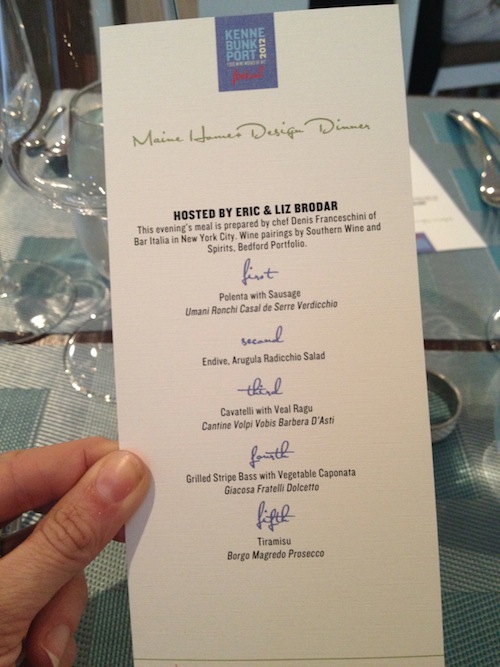 KENNE
BUNK
PORT
2012
Maine Home+Design Dinner
HOSTED BY ERIC & LIZ BRODAR
This evening's meal is prepared by chef Denis Franceschini of
Bar Italia in New York City. Wine pairings by Southern Wine and
Spirits, Bedford Portfolio.
first
Polenta with Sausage
Umani Ronchi Casal de Serre Verdicchio
second
Endive, Arugula Radicchio Salad
third
Cavatelli with Veal Ragu
Cantine Volpi Vobis Barbera D'Asti
fourth
Grilled Stripe Bass with Vegetable Caponata
Giacosa Fratelli Dolcetto
fifth
Tiramisu
Borgo Magredo Prosecco